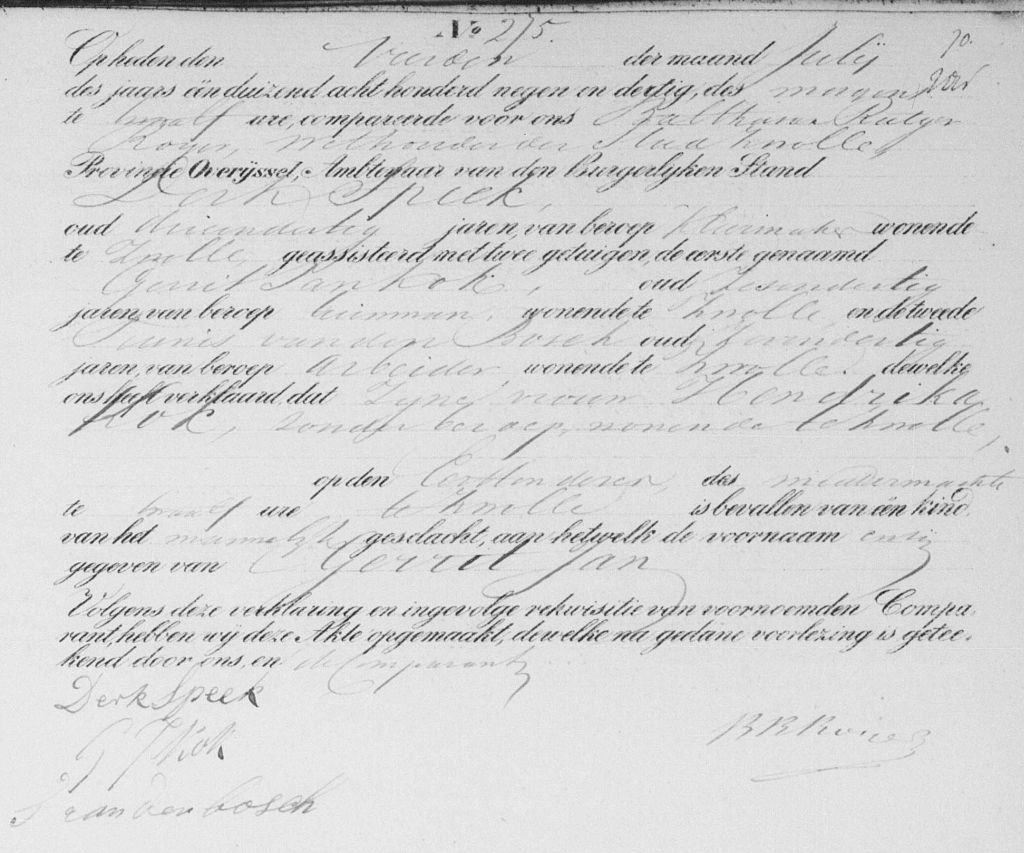 No 275.
Op heden den Vierden der maand Julij
des jaars één duizend acht honderd negen en dertig, des morgens
te twaalf ure, compareerde voor ons Balthasar Rutger
Royer, Wethouder der Stad Zwolle,
Provincie Overijssel, Ambtenaar van den Burgerlijken Stand
Derk Speek,
oud drieendertig jaren, van beroep Kleermaker wonende
te Zwolle, geassisteerd met twee getuigen, de eerste genaamd
Gerrit Jan Kok, oud zesendertig
jaren, van beroep wonende te Zwolle en de tweede
Teunis van den Bosch oud jaren
jaren, van beroep Arbeider, wonende te Zwolle. dewelke
ons heeft verklaard, dat Zyne vrouw Hendrika
Kok, zonder beroep, wonende te Zwolle,
op den Eersten dezer, des middernachts
te twaalf ure te Zwolle is bevallen van één kind
van het mannelyk geslacht, aan hetwelk de voornaam en is
gegeven van Gerrit Jan
Volgens deze verklaring en ingevolge rekwisitie van voornoemden Compa-
rant, hebben wij deze Akte opgemaakt, dewelke na gedane voorlezing is getee-
kend door ons, en de Comparant
Derk Speek
G J Kok
T van den bosch